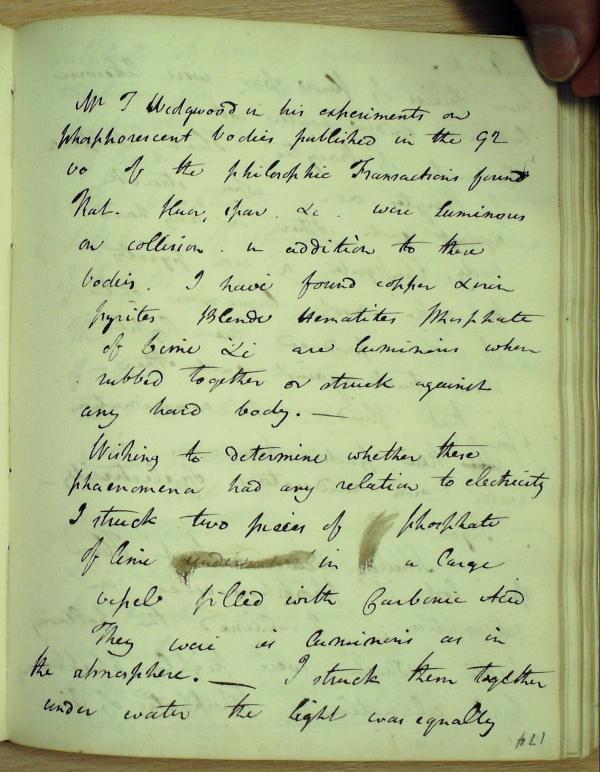 Mr T Wedgwood in his experiments on
phosphorescent bodies published in the 92
vo of the philosophic Transactions found
that fluor, spar &c. were luminous
on collision. in addition to these
bodies. I have found copper & iron
pyrites Blende Hematites Phosphate
of lime &c are luminous when
rubbed together or struck against
any hard body. —
Wishing to determine whether these
phaenomena had any relation to electricity
I struck two pieces of phosphate
of lime in a large
vessel filled with Carbonic Acid
They were as luminous as in
the atmosphere. — I struck them together
under water the light was equally